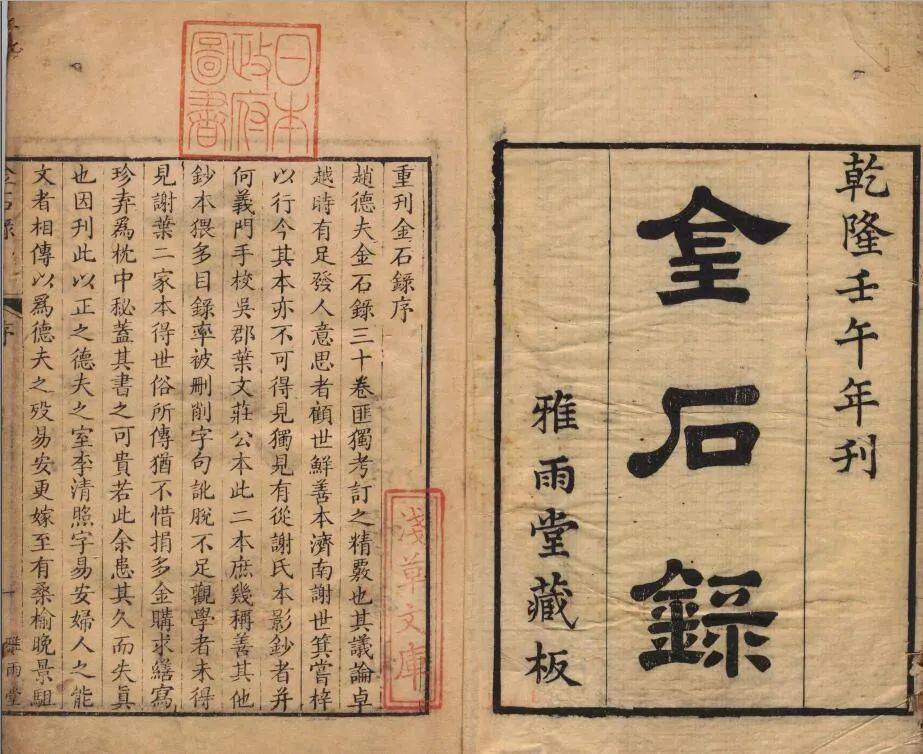 乾隆壬午年刊
金石錄
雅雨堂藏板
日本
政府
圖書
重刊金石錄序
趙德夫金石錄三十卷匪獨考訂之精覈也其議論卓
越時有足發人意思者顧世鮮善本濟南謝世箕嘗梓
以行今其本亦不可得見獨見有從謝氏本影鈔者并
何義門手校吳郡葉文莊公本此二本庶幾稱善其他
鈔本猥多目錄率被删削字句訛脫不足觀學者未得
見謝葉二家本得世俗所傳猶不惜捐多金購求繕寫
珍弆爲枕中秘蓋其書之可貴若此余患其久而失眞
也因刊此以正之德夫之室李清照字易安婦人之能
文者相傳以爲德夫之歿易安更嫁至有桑榆晚景駔
淺草文庫
金石錄
序
雅雨堂